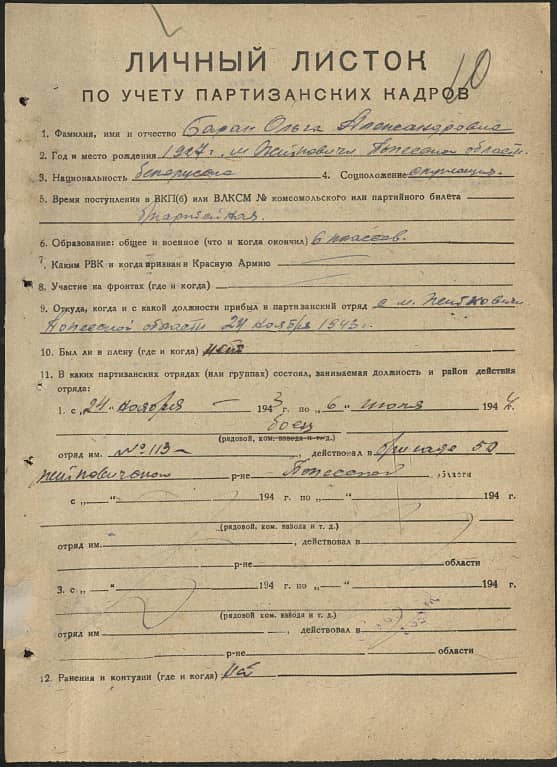 10
ЛИЧНЫЙ ЛИСТОК
ПО УЧЕТУ ПАРТИЗАНСКИХ КАДРОВ
1. Фамилия, имя и отчество Баран Ольга Александровна
2. Год и место рождения 1927 г. м. Житковичи Полесской области.
3. Национальность белоруска 4. Соцположение
5. Время поступления в ВКП(б) или ВЛКСМ № комсомольского или партийного билета
б/партейная.
6. Образование: общее и военное (что и когда окончил) 6 классов.
7. Каким РВК и когда призван в Красную Армию
8. Участие на фронтах (где и когда)
9. Откуда, когда и с какой должности прибыл в партизанский отряд с м. Житковичи
Полесской области 24 ноября 1943 г.
10. Был ли в плену (где и когда) нет
11. В каких партизанских отрядах (или группах) состоял, занимаемая должность и район действия
отряда:
1. с „24" ноября — 1943 г. по „6" июля 1944 г.
боец
(рядовой, ком. взвода и т. д.)
отряд им. № 113 — , действовал в бригаде 50
Житковичском р-не Полесской области
с „ — " 194 г. по „ — " 194 г.
(рядовой, ком. взвода и т. д.)
отряд им. , действовал в
р-не области
3. с „ — " 194 г. по „ — " 194 г.
(рядовой ком. взвода и т. д.)
отряд им , действовал в
р-не области
12. Ранения и контузии (где и когда) нет